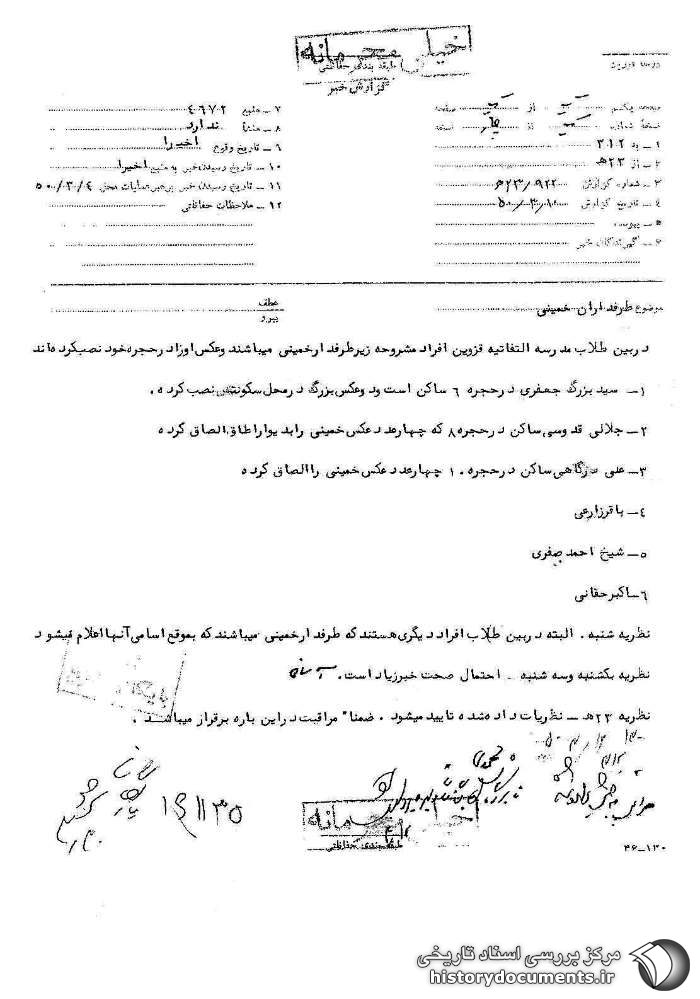 خیلی محرمانه
طبقه بندی حفاظتی
گزارش خبر
صفحه یکم از صفحه
نسخه شماره از چهار نسخه
۱ـ به ۳۱۲
۲ـ از ۲۳ه‍
۳ـ شماره گزارش ۹۲۲/۲۳ه‍
۴ـ تاریخ گزارش ۵۰/۳/۱۰
۵ـ پیوست
۶ـ گیرندگان خبر
۷ـ منبع ۴۰۶۷۲
۸ـ منشأ ندارد
۹ـ تاریخ وقوع اخیرا
۱۰ـ تاریخ رسیدن خبر به منبع اخیرا
۱۱ـ تاریخ رسیدن خبر برهبر عملیات محل ۵۰/۳/۴
۱۲ـ ملاحظات حفاظتی
موضوع طرفداران خمینی
عطف
پیرو
دربین طلاب مدرسه التفاتیه قزوین افراد مشروحه زیر طرفدار خمینی میباشند وعکس اوراد رحجره خود نصب کرده اند
۱ـ سید بزرگ جعفری درحجره ۶ ساکن است ودوعکس بزرگ درمحل سکونتش نصب کرده.
۲ـ جلالی قدوسی ساکن درحجره ۸ که چهارعدد عکس خمینی رابدیواراطاق الصاق کرده
۳ـ علی ساکن درحجره ۱۰ چهارعدد عکس خمینی راالصاق کرده
۴ـ باقرزارعی
۵ـ شیخ احمد صفری
۶ـ اکبرحقانی
نظریه شنبه. البته دربین طلاب افراد دیگری هستند که طرفدار خمینی میباشند که بموقع اسامی آنها اعلام میشود
نظریه یکشنبه وسه شنبه ـ احتمال صحت خبرزیاد است.
نظریه ۲۳ه‍ ـ نظریات داده شده تایید میشود. ضمنا" مراقبت دراین باره برقرار میباشد.
۱۹۱۱۳۵
خیلی محرمانه
طبقه بندی حفاظتی
۴۶ـ۱۳۰
مرکز بررسی اسناد تاریخی
historydocuments.ir